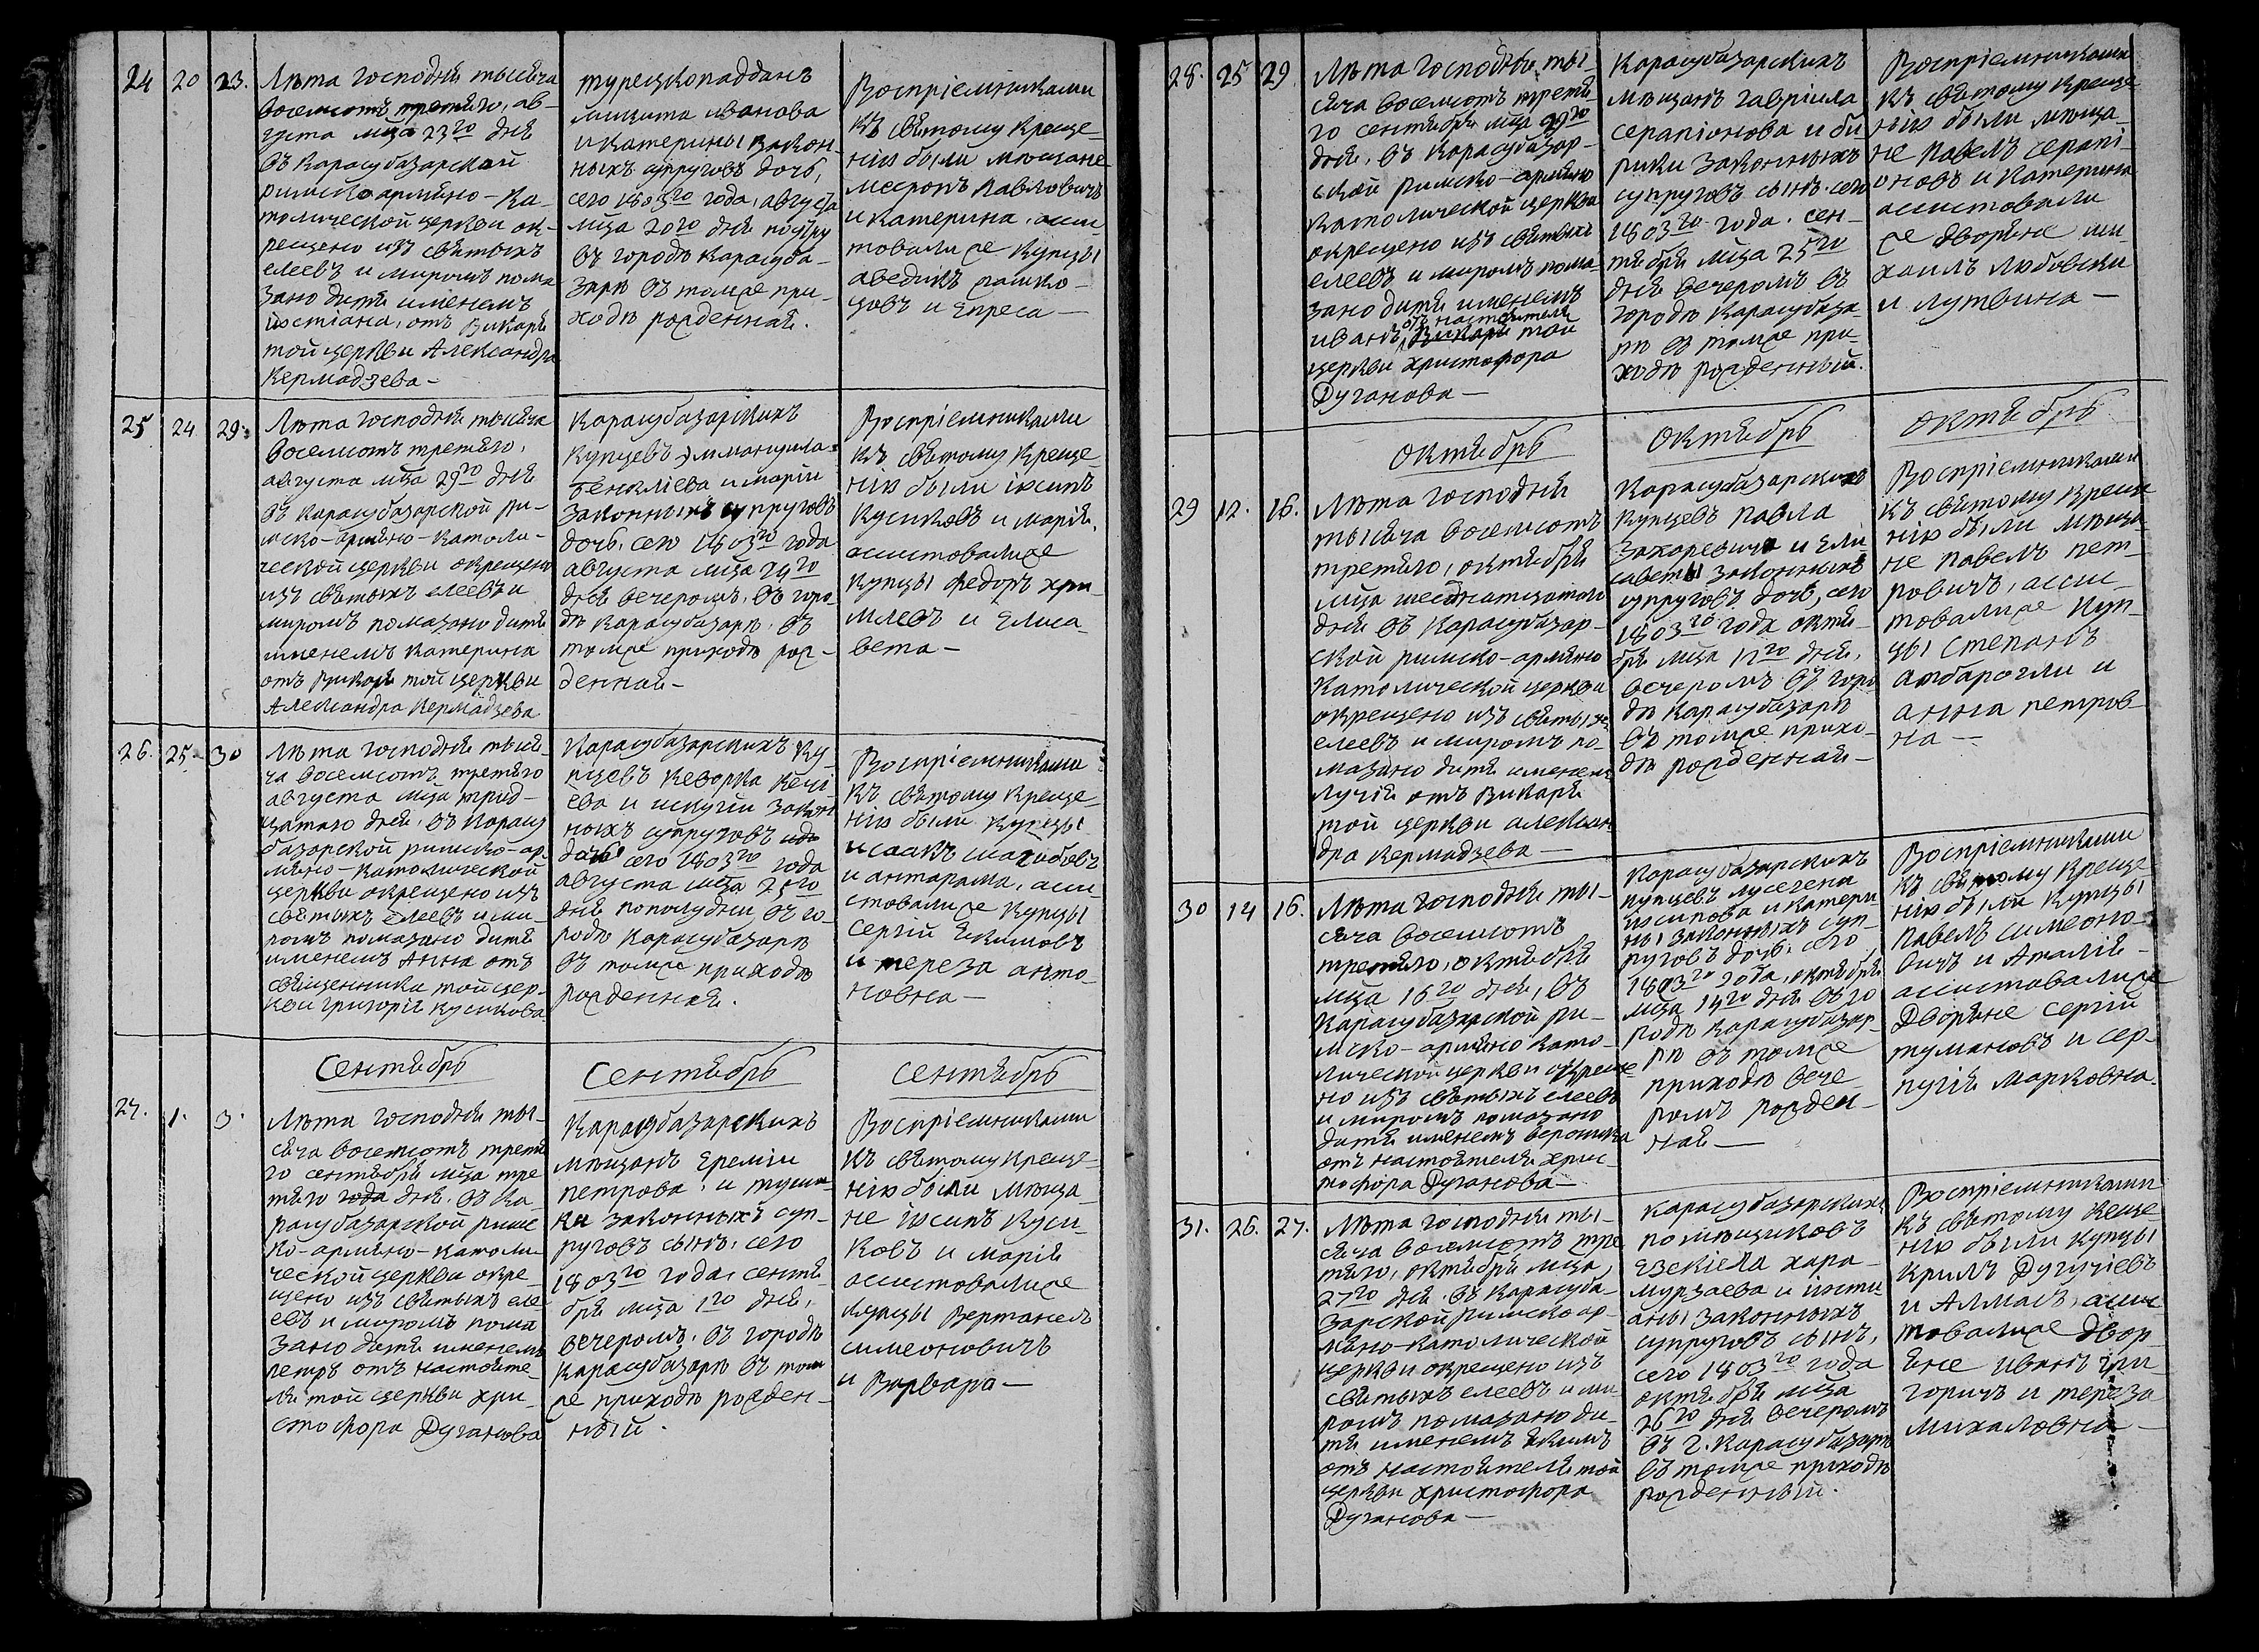 24 20 23.
Лѣта Господня тысяча
восемсотъ третяго, ав-
густа мѣца 23го дня
въ Карасубазарской
римско армяно-Ка-
толической церкви ок-
рещено изъ святыхъ
елеевъ и миромъ пома
зано дитя именемъ
іюстіана, отъ Викаря
той церкви Александра
Кермадзева-
турецкоподданъ
микита иванова
и Катерины закон-
ныхъ супруговъ дочь,
сего 1803го года, августа
мѣца 20го дня поутру
въ городѣ Карасуба-
зарѣ въ томже при-
ходѣ рожденная.
Воспріемниками
къ святому Креще-
нію были мѣщане
месропъ Павловичъ
и Катерина, асси
товалиже Купцы
аведикъ
и Епреса-
25 24 29.
Лѣта Господня тысяча
восемсотъ третяго,
августа мѣца 29го дня
въ Карасубазарской ри-
мско-армяно-Католи-
ческой церкви окрещено
изъ святыхъ елеевъ и
миромъ помазано дитя
именемъ Катерина
отъ Викаря той церкви
Александра Кермадзева
Карасубазарскихъ
Купцевъ Эммануила
и маріи
законныхъ супруговъ
дочь, сего 1803го года
августа мѣца 24го
дня вечеромъ, въ горо-
дѣ Карасубазарѣ, въ
томже приходѣ рож-
денная-
Воспріемниками
къ святому Креще
нію были іюсипъ
Кусиковъ и марія,
ассистовалиже
Купцы Федоръ хри-
млевъ и Елиса-
вета-
26. 25. 30
Лѣта Господня тыся-
ча восемсотъ третяго
августа мѣца трид-
цатаго дня, въ Карасу
базарской римско-ар
мяно-Католической
церкви окрещено изъ
святыхъ елеевъ и ми-
ромъ помазано дитя
именемъ Анна отъ
священника той цер-
кви григорія Кусикова
Карасубазарскихъ Ку-
пцевъ Кеворка Кечі-
ева и искуги закон
ныхъ супруговъ
дочь сего 1803го года
августа мѣца 25го
дня пополудни, въ го-
родѣ Карасубазарѣ
въ томже приходѣ
рожденная.
Воспріемниками
къ святому Креще-
нію были Купцы
исаакъ
и антарама, асси
стовалиже Купцы
Сергій Екимовъ
и тереза анто-
новна-
Сентябрь
Сентябрь
Сентябрь
27. 1. 3.
Лѣта Господня ты-
сяча восемсотъ третя
го сентября мѣца тре
тяго года дня, въ Ка-
расубазарской римс
ко-армяно-Католи-
ческой церкви окре-
щено изъ святыхъ еле
евъ и миромъ пома
зано дитя именемъ
петръ отъ настояте-
ля той церкви хри-
стофора Дуганова
Карасубазарскихъ
мѣщанъ Ереміи
петрова, и
законныхъ суп-
руговъ сынъ, сего
1803го года, сентя
бря мѣца 1го дня,
вечеромъ, въ городѣ
Карасубазарѣ въ том
же приходѣ рожден-
ный.
Воспріемниками
къ святому Креще-
нію были мѣща-
не іюсипъ Куси-
ковъ и марія
ассистовалиже
Купцы Вертанесъ
симеоновичъ
и Варвара-
28. 25 29.
Лѣта Господня ты-
сяча восемсотъ третя-
го сентября мѣца 29го
дня, въ Карасубазар-
ской римско-армяно
Католической церкви
окрещено изъ святыхъ
елеевъ и миромъ пома-
зано дитя именемъ
отъ настоятеля
иванъ, Викаря той
церкви христофора
Дуганова-
Карасубазарскихъ
мѣщанъ гавріила
серапіонова и би
рики законныхъ
супруговъ сынъ, сего
1803го года, сен-
тября мѣца 25го
дня вечеромъ въ
городѣ Карасубаза-
рѣ въ томже при-
ходѣ рожденный.
Воспріемниками
къ святому Креще
нію были мѣща-
не павелъ серапі-
оновъ и Катерина
ассистовали
же дворяне ми-
хаилъ Любовски
и лутвина-
Октябрь
Октябрь
Октябрь
29 12. 16.
Лѣта Господня
тысяча восемсотъ
третяго, октября
мѣца шестнатцатаго
дня въ Карасубазар-
ской римско-армяно
Католической церкви
окрещено изъ святыхъ
елеевъ и миромъ по-
мазано дитя именемъ
лучія отъ Викаря
той церкви алексан
дра Кермадзева-
Карасубазарскихъ
Купцевъ Павла
Захаревича и Ели-
саветы законныхъ
супруговъ дочь, сего
1803го года октя-
бря мѣца 12го дня,
вечеромъ въ горо
дѣ Карасубазарѣ
въ томже прихо-
дѣ рожденная-
Воспріемниками
къ святому Креще
нію были мѣща
не павелъ пет-
ровичъ, асси-
товалиже Куп-
цы Степанъ
амбарогли и
анна петров
на-
30 14 16.
Лѣта Господня ты-
сяча восемсотъ
третяго, октября
мѣца 16го дня, въ
Карасубазарской ри-
мско-армяно Като-
лической церкви окреще
но изъ святыхъ елеевъ
и миромъ помазано
дитя именемъ вероника
отъ настоятеля хрис-
тофора Дуганова-
Карасубазарскихъ
купцевъ лусегена
іюсипова и Катери
ны законныхъ суп-
руговъ дочь, сего
1803го года, октября
мѣца 14го дня въ го
родѣ Карасубазар-
рѣ въ томже
приходѣ вече-
ромъ рожден-
ная-
Воспріемниками
къ святому Креще
нію были Купцы
павелъ симеоно-
вичъ и Амалія-
ассистовалиже
Дворяне Сергій
тумановъ и сер-
пугія Марковна.
31. 26. 27.
Лѣта Господня ты-
сяча восемсотъ тре
тяго, октябрь мѣца,
27го дня, въ Карасуба-
зарской римско ар-
мяно-Католической
церкви окрещено изъ
святыхъ елеевъ и ми-
ромъ помазано ди-
тя именемъ якимъ
отъ настоятеля той
церкви христофора
Дуганова-
Карасубазарскихъ
помѣщиковъ
Езекіела хара-
мурзаева и іюсти
аны законныхъ
супруговъ сынъ,
сего 1803го года
октября мѣца
26го дня вечеромъ
въ г. Карасубазарѣ
въ томже приходѣ
рожденный.
Воспріемниками
къ святому Кеще
нію были Купцы
Крилъ Дугучіевъ
и Алмасъ, асси
товалиже двор-
яне иванъ гри-
горичъ и тереза
михаловна-